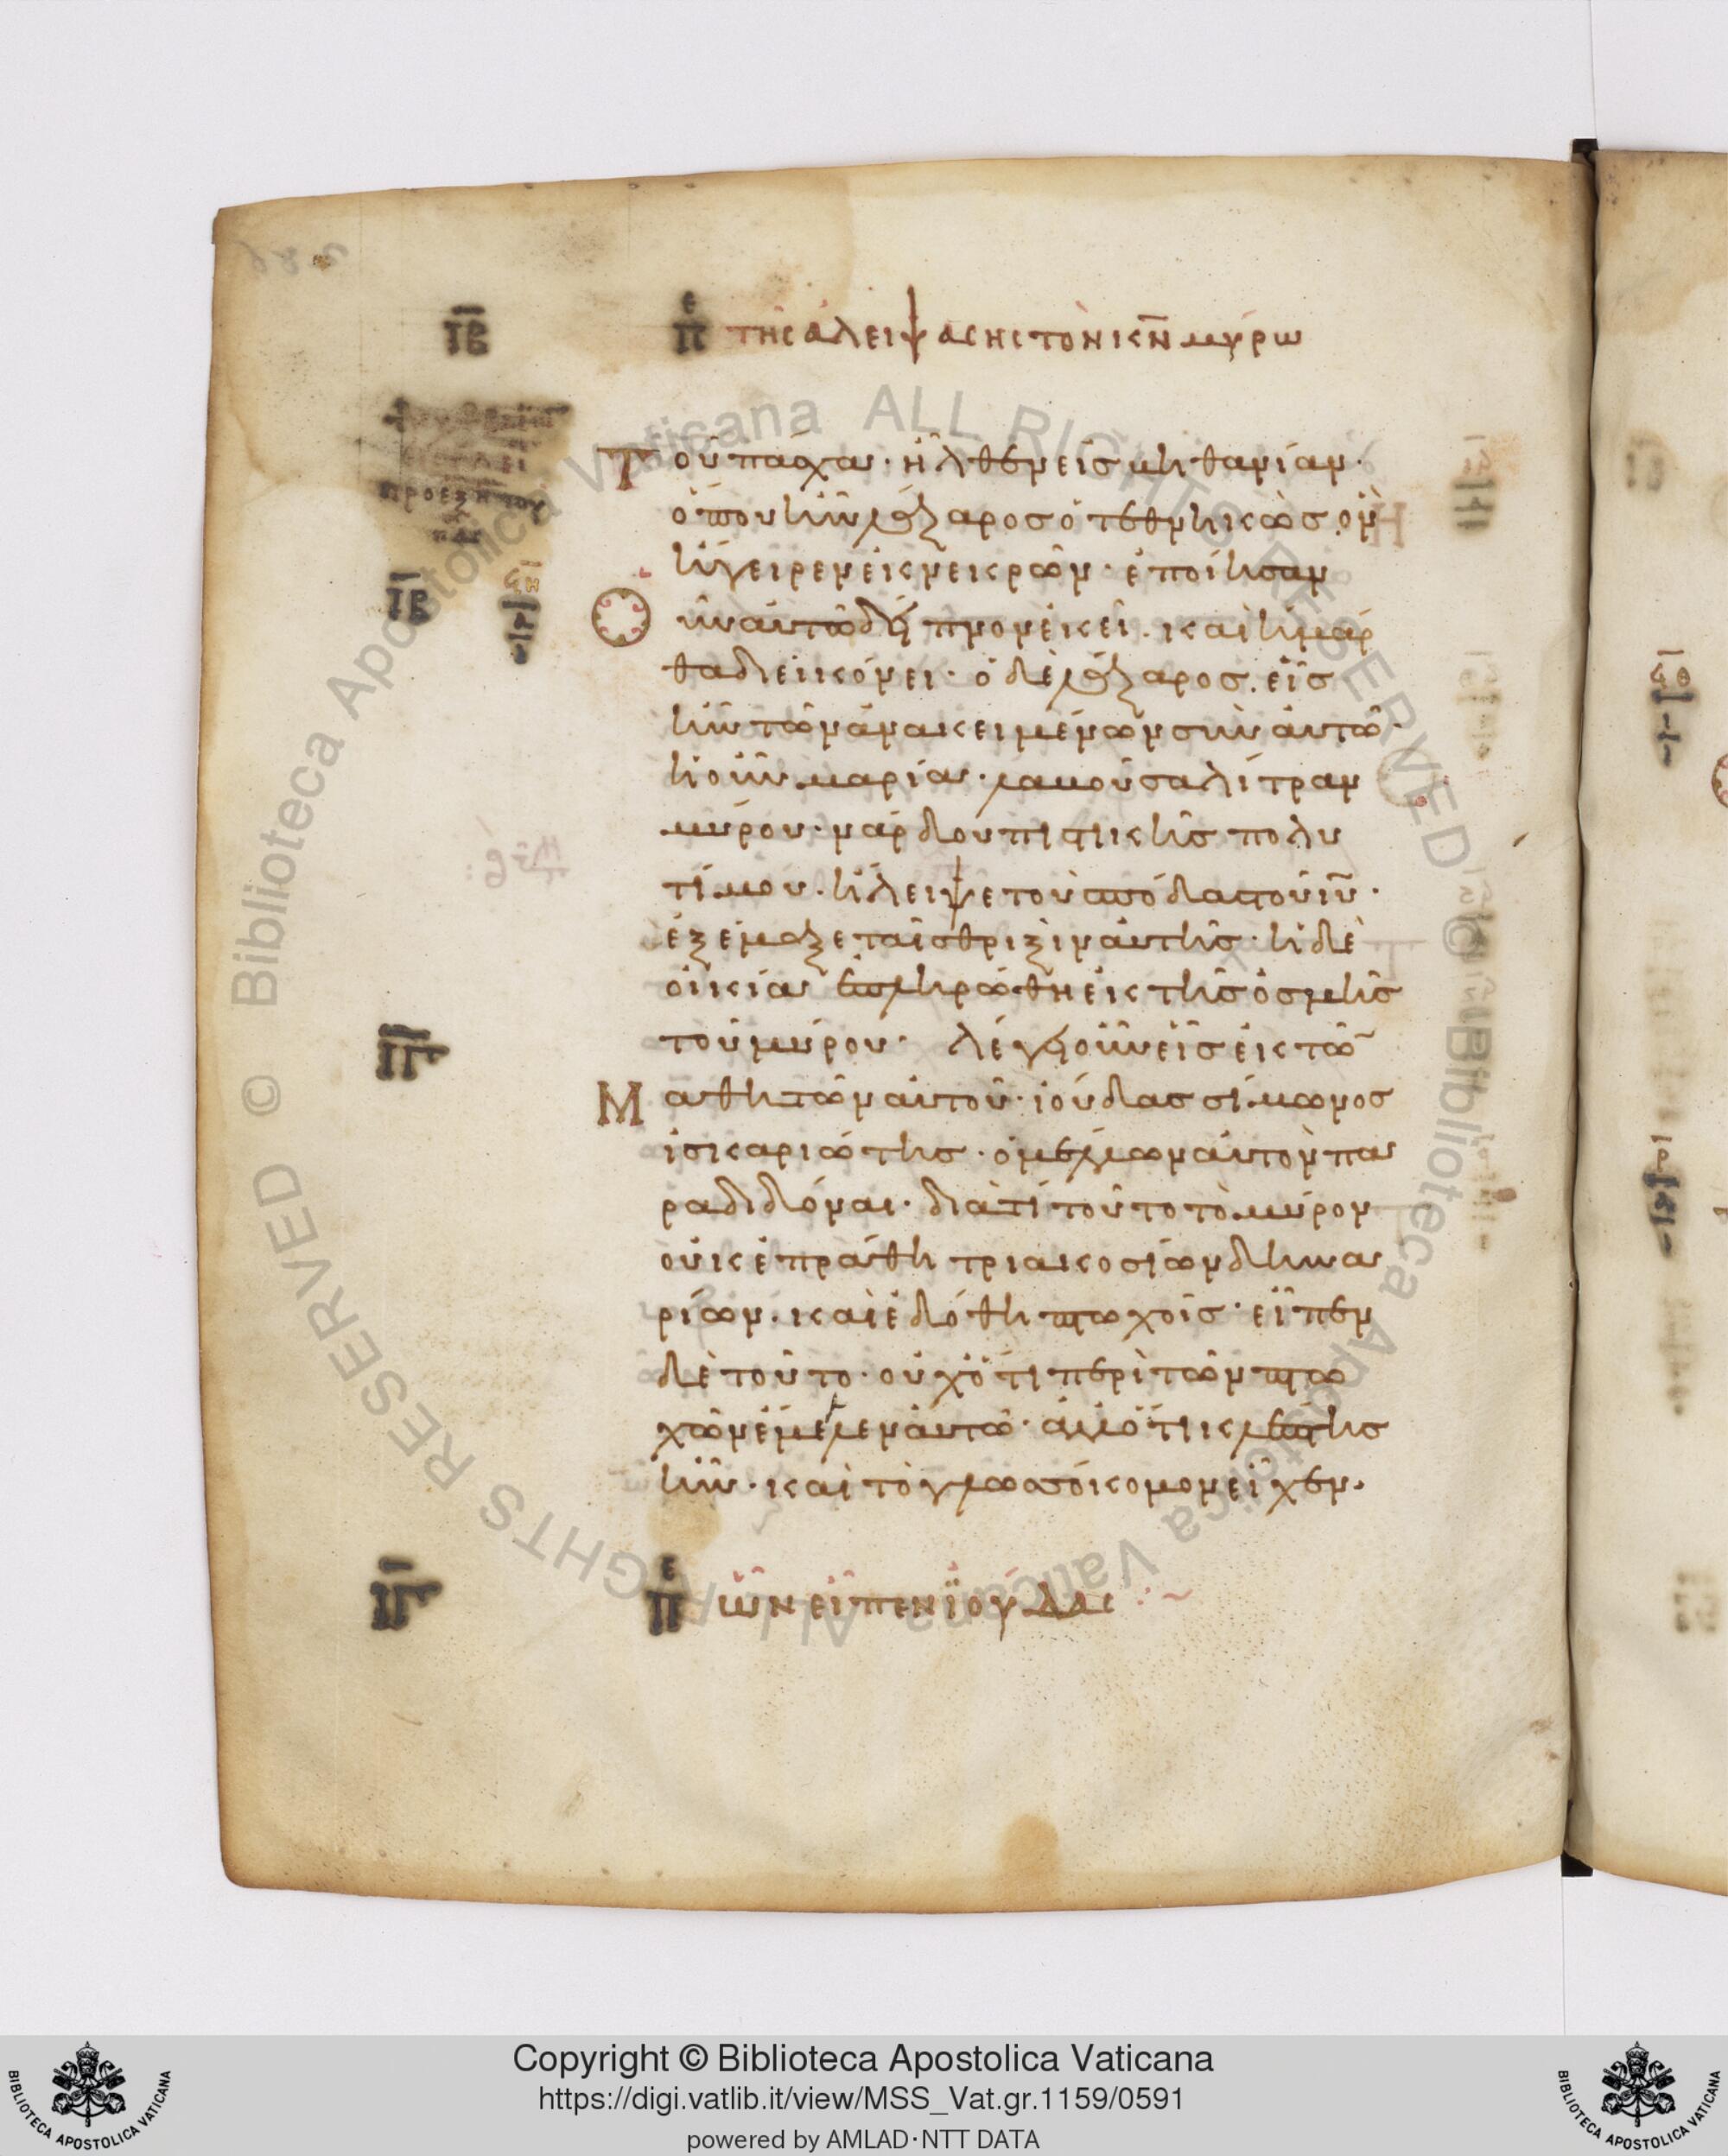 ΙΒ
Π ε τῆς ἀλειψάσης τὸν κν μύρω
Τ οῦ πάσχα· ἦλθεν εἰς βηθανίαν·
ὅπου ἦν λάζαρος ὁ τεθνηκὼς. ὃν
ἤγειρεν ἐκ νεκρῶν· ἐποίησαν
οὖν αὐτῶ δεῖπνον ἐκεῖ. καὶ ἡ μάρ
θα διεικόνει· ὁ δὲ λάζαρος. εἷς
ἦν τῶν ἀνακειμένων σὺν αὐτῶ·
ἡ οὖν μαρία· λαβοῦσα λίτραν
μύρου· νάρδου πιστικῆς πολυ
τίμου· ἤλειψε τοὺς πόδας τοῦ ιυ·
ἐξέμαξε ταῖς θριξὶν αὐτῆς· ἡ δὲ
οἰκία ἐπληρώθη ἐκ τῆς ὀσμῆς
τοῦ μύρου· λέγει οὖν εἷς ἐκ τῶ
Μ αθητῶν αὐτοῦ· ἰούδας σίμωνος
ἰσκαριώτης· ὁ μέλλων αὐτὸν πα
ραδιδόναι· διατί τοῦτο τὸ μύρον
οὐκ ἐπράθη τριακοσίων δηνα
ρίων· καὶ ἐδόθη πτωχοῖς· εἶπεν
δὲ τοῦτο· οὐχ ὅτι περὶ τῶν πτω
χῶν ἔμελεν αὐτῶ· ἀλλ ὅτι κλέπτης
ἦν· καὶ τὸ γλωσσόκομον εἶχεν·
ΙΓ
Π ε ὧν εἶπεν ἰούδας
Copyright © Biblioteca Apostolica Vaticana
https://digi.vatlib.it/view/MSS_Vat.gr.1159/0591
powered by AMLAD·NTT DATA
BIBLIOTECA APOSTOLICA VATICANA
BIBLIOTECA APOSTOLICA VATICANA
Biblioteca Apostolica Vaticana ALL RIGHTS RESERVED ©
Biblioteca Apostolica Vaticana ALL RIGHTS RESERVED ©